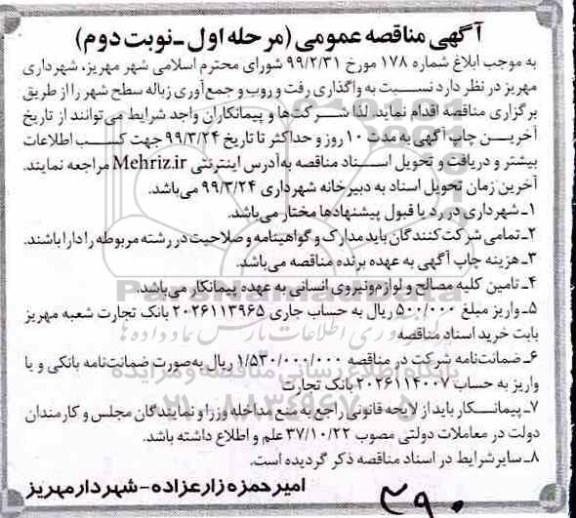 آگهی مناقصه عمومی (مرحله اول - نوبت دوم)
به موجب ابلاغ شماره ۱۷۸ مورخ ۹۹/۲/۳۱ شورای محترم اسلامی شهر مهریز، شهرداری
مهریز در نظر دارد نسبت به واگذاری رفت و روب و جمع آوری زباله سطح شهر را از طریق
برگزاری مناقصه اقدام نماید. لذا شرکت ها و پیمانکاران واجد شرایط می توانند از تاریخ
آخرین چاپ آگهی به مدت ۱۰ روز و حداکثر تا تاریخ ۹۹/۳/۲۴ جهت کسب اطلاعات
بیشتر و دریافت و تحویل اسناد مناقصه به آدرس اینترنتی Mehriz.ir مراجعه نمایند.
آخرین زمان تحویل اسناد به دبیرخانه شهرداری ۹۹/۳/۲۴ می باشد.
۱ـ شهرداری در رد یا قبول پیشنهادها مختار می باشد.
۲ـ تمامی شرکت کنندگان باید مدارک و گواهینامه و صلاحیت در رشته مربوطه را دارا باشند.
۳ـ هزینه چاپ آگهی به عهده برنده مناقصه می باشد.
۴ـ تامین کلیه مصالح و لوازم ونیروی انسانی به عهده پیمانکار می باشد.
۵ـ واریز مبلغ ۵۰۰/۰۰۰ ریال به حساب جاری ۲۰۲۶۱۱۳۹۶۵ بانک تجارت شعبه مهریز
بابت خرید اسناد مناقصه
۶ـ ضمانت نامه شرکت در مناقصه ۱/۵۳۰/۰۰۰/۰۰۰ ریال به صورت ضمانت نامه بانکی و یا
واریز به حساب ۲۰۲۶۱۱۴۰۰۷ بانک تجارت
۷ـ پیمانکار باید از لایحه قانونی راجع به منع مداخله وزرا و نمایندگان مجلس و کارمندان
دولت در معاملات دولتی مصوب ۳۷/۱۰/۲۲ علم و اطلاع داشته باشد.
۸ـ سایر شرایط در اسناد مناقصه ذکر گردیده است.
امیر حمزه زارعزاده - شهردار مهریز
۳۹۰
ParsNamadData
پایگاه اطلاع رسانی مناقصه و مزایده